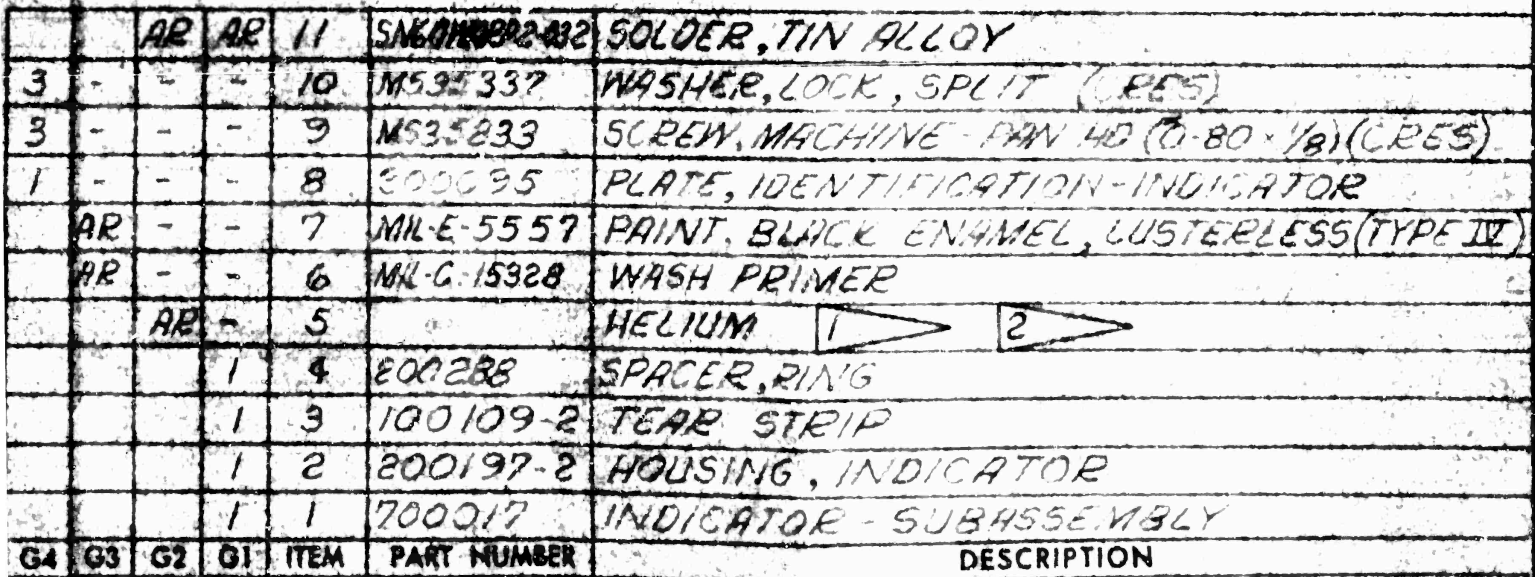 AR AR 11 SOLDER, TIN ALLOY
3 - - - 10 MS35337 WASHER, LOCK, SPLIT (CRES)
3 - - - 9 MS35233 SCREW, MACHINE - PAN HD (0-80 × 1/8)(CRES)
1 - - - 8 PLATE, IDENTIFICATION-INDICATOR
AR - - 7 MIL-E-5557 PAINT, BLACK ENAMEL, LUSTERLESS (TYPE IV)
AR - - 6 MIL-C-15328 WASH PRIMER
AR - 5 HELIUM 1 2
1 4 800288 SPACER, RING
1 3 100109-2 TEAR STRIP
1 2 200197-2 HOUSING, INDICATOR
1 1 700017 INDICATOR - SUBASSEMBLY
G4 G3 G2 G1 ITEM PART NUMBER DESCRIPTION